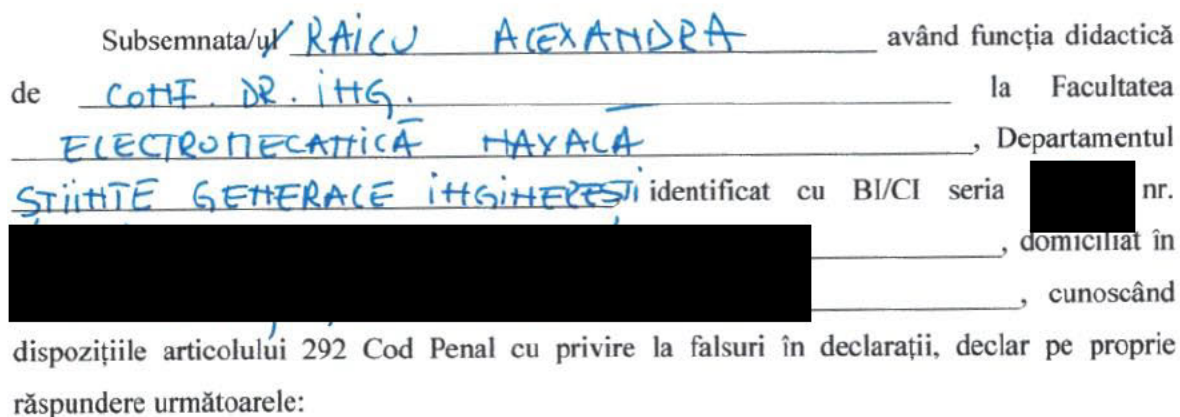 Subsemnata/ul RAICU ALEXANDRA având funcția didactică
de CONF. DR. ING. la Facultatea
ELECTROMECANICĂ NAVALĂ, Departamentul
ȘTIINȚE GENERALE INGINEREȘTI identificat cu BI/CI seria nr.
, domiciliat în
, cunoscând
dispozițiile articolului 292 Cod Penal cu privire la falsuri în declarații, declar pe proprie
răspundere următoarele: